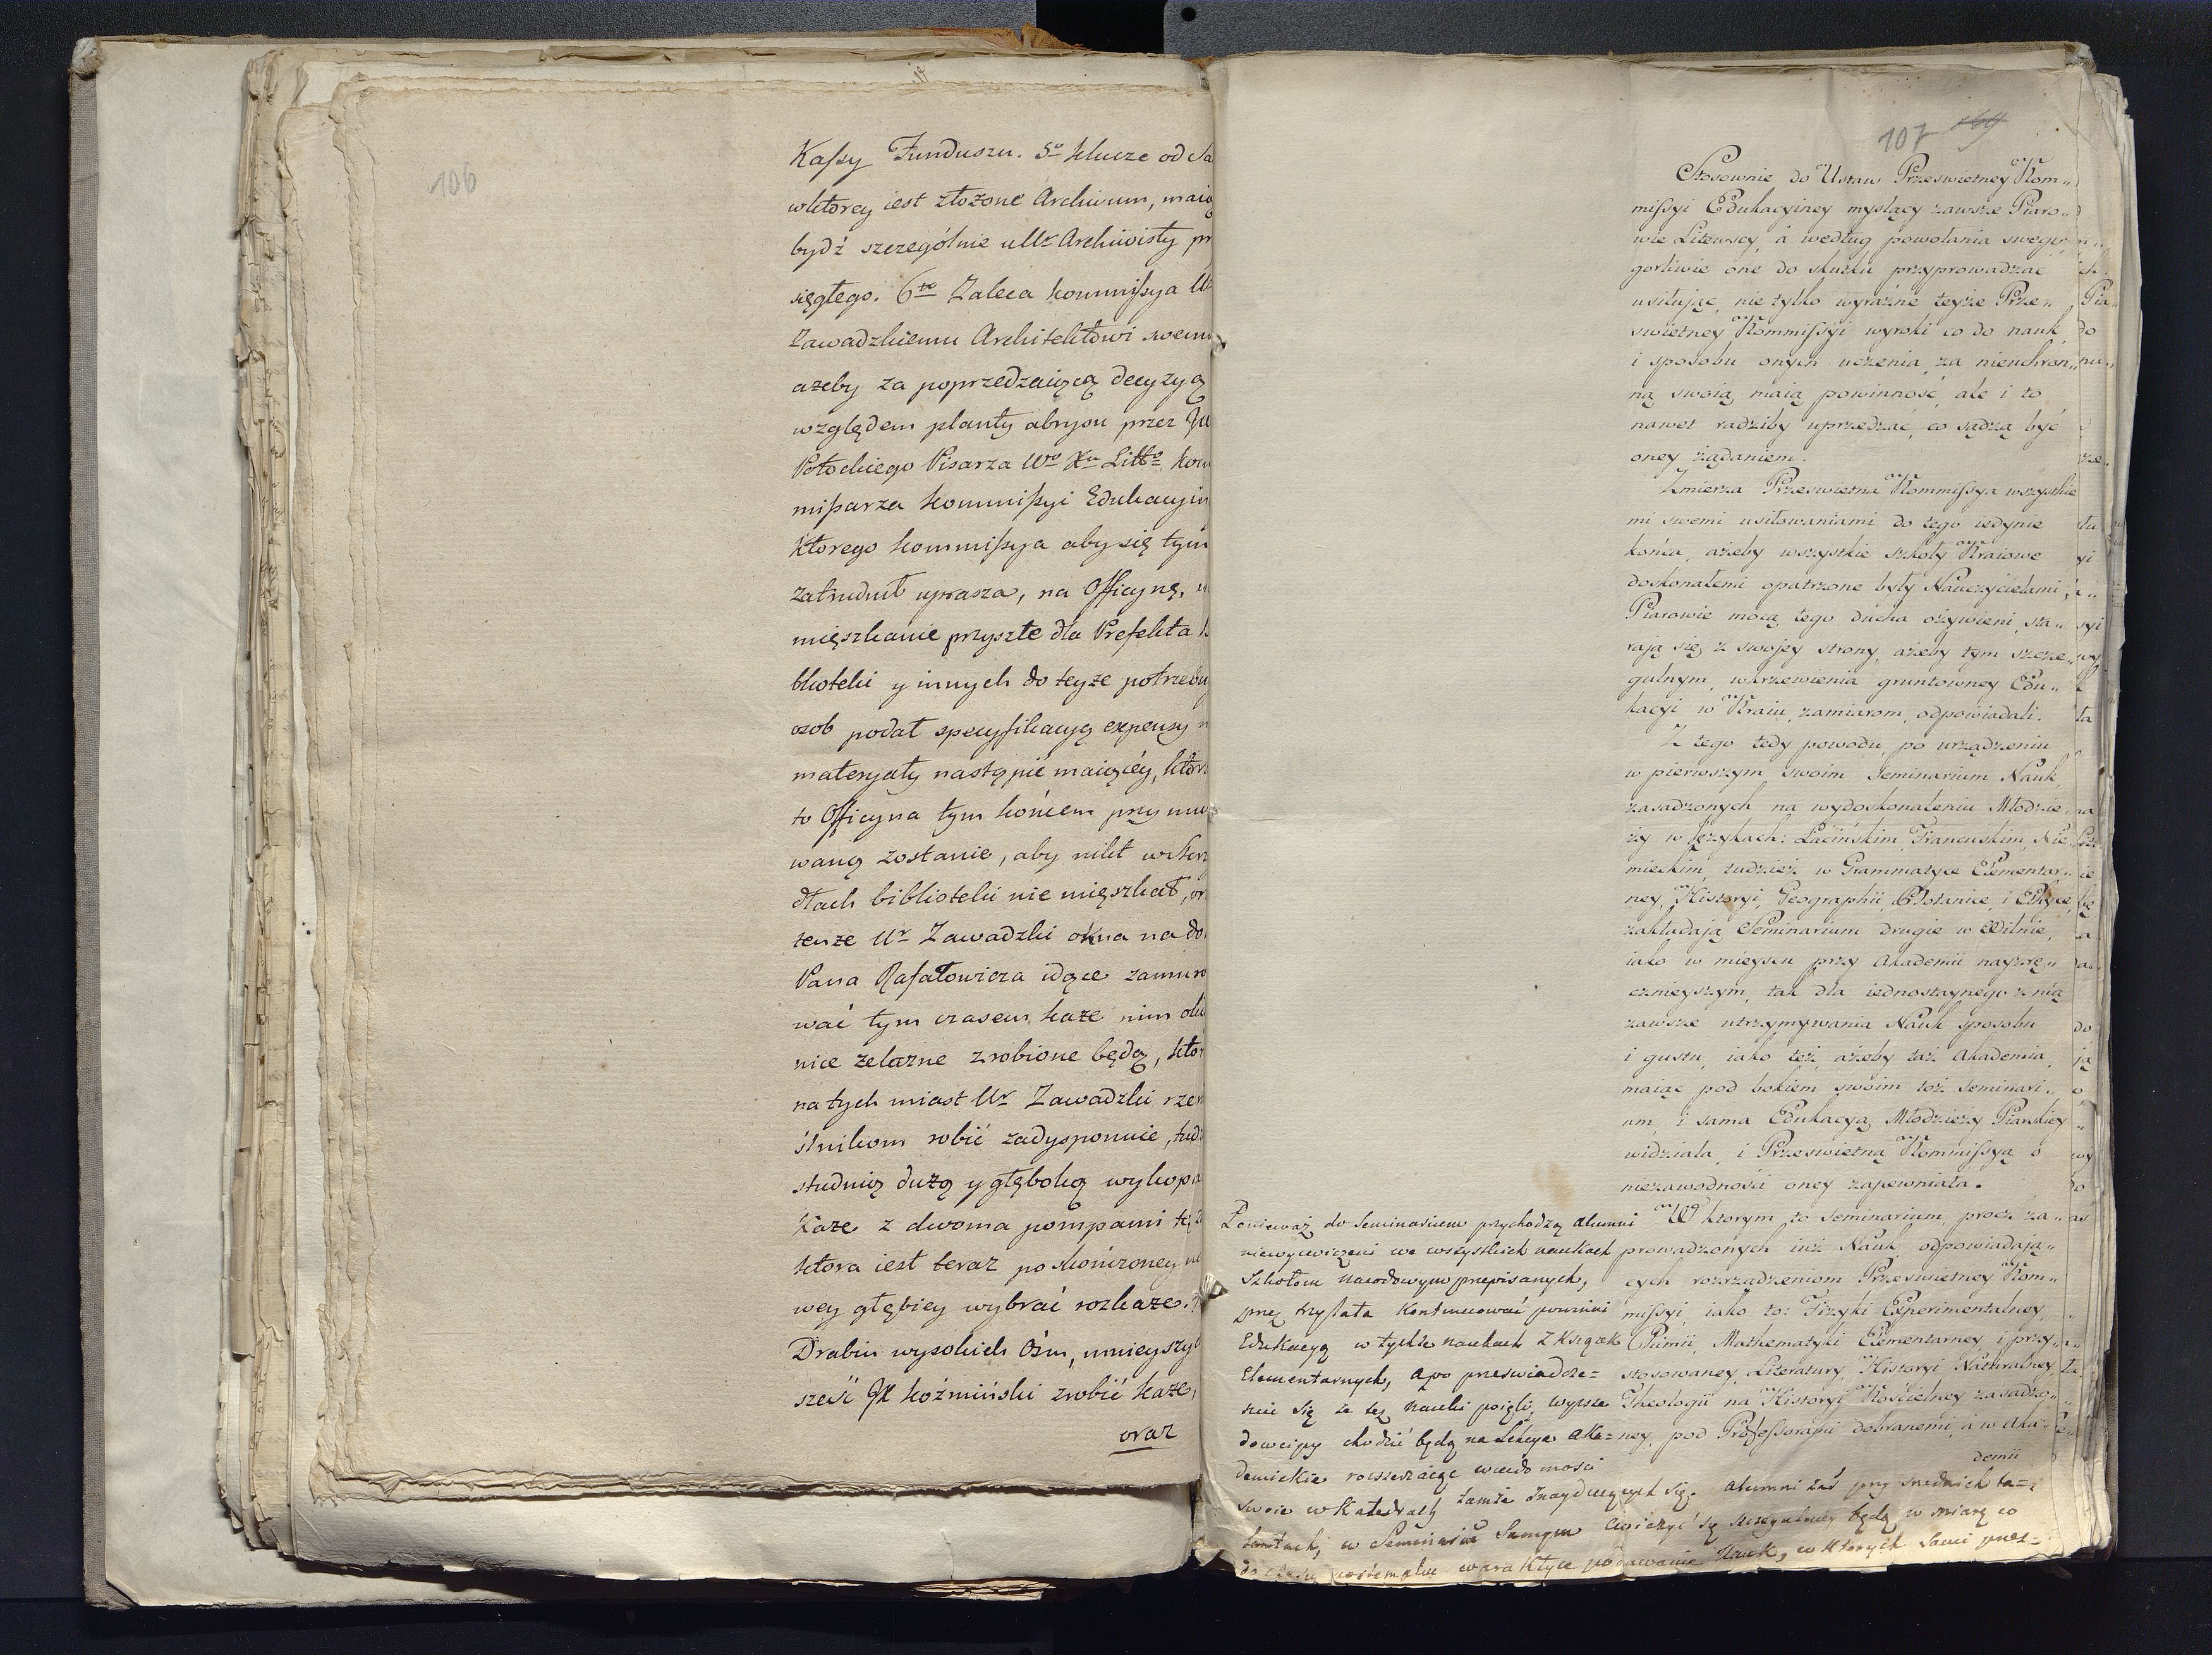 106
Kassy Funduszu. 5° klucze od Sa
wktorey iest złożone Archiwum, maią
bydź szczególnie u Ur Archiwisty pr
sięgłego. 6to Zaleca kommissya Ur
Zawadzkiemu Architektowi swemu
ażeby za poprzedzaiącą decyzyą
względem planty abrysu przez
Potockiego Pisarza Wo Xa Litto kom
missarza kommissyi Edukacyin
Ktorego kommissya aby się tym
zatrudnił uprasza, na Officynę,
mięszkanie przyszłe dla Prefekta
blioteki y innych do teyże potrzebu
osob podał specyfikacyą expensy
materyały nastąpić maiącéy, któr
to Officyna tym końcem przymu
waną zostanie, aby nikt w skrzy
dłach biblioteki nie mięszkał, or
tenże Ur Zawadzki okna na do
Pana Rafałowicza idące zamuro
wać tym czasem każe nim oki
nice żelazne zrobione będą, któr
natych miast Ur Zawadzki rzem
iślnikom robić zadysponuie, tudz
studnią dużą y głęboką wykopa
Każe z dwoma pompami
która iest teraz poskończoney
wey głębiey wybrać rozkaże.
Drabin wysokich Ośm, mnieyszy
sześć JX koźmiński zrobić każe,
oraz
107
Stosownie do Ustaw Przeswietney Kom„
missyi Edukacyiney myslący zawsze Piaro„
wie Litewscy, á według powołania swego
gorliwie one do skutku przyprowadzać
usiłując, nie tylko wyraźne teyże Prze„
swietney Kommissyi wyroki co do nauk,
i sposobu onych uczenia, za nieuchron„
ną swoią maią powinność, ale i to
nawet radziby uprzedzać, co sądzą być
oney żądaniem.
Zmierza Przeswietna Kommissya wszystkie
mi swemi usiłowaniami do tego iedynie
końca, ażeby wszystkie szkoły Kraiowe
doskonałemi opatrzone były Nauczycielami;
Piarowie mocą tego ducha ożywieni, sta„
rają się z swojey strony, ażeby tym szcze„
gulnym, wkrzewienia gruntowney Edu„
kacyi w Kraiu, zamiarom, odpowiadali.
Z tego tedy powodu, po urządzeniu
w pierwszym swoim Seminarium Nauk
zasadzonych na wydoskonaleniu Młodzie„
ży w Językach: Łacińskim, Francuskim, Nie„
mieckim, tudzież w Grammatyce Elementar„
ney, Historyi, Geographii, Botanice, i Etyce,
zakładają Seminarium drugie w Wilnie,
iako w mieyscu przy Akademii nayzrę„
cznieyszym, tak dla iednostaynego z nią
zawsze utrzymywania Nauk sposobu
i gustu, iako też, ażeby taż Akademia,
maiąc pod bokiem swoim toż Seminari„
um, i sama Edukacyą Młodzieży Piarskiey
widziała, i Przeswietną Kommissyą o
niezawodności oney zapewniała.
W ktorym to Seminarium, procz za„
prowadzonych iuż Nauk, odpowiadają„
cych rozrządzeniom Przeswietney Kom„
missyi, iako to: Fizyki Experimentalney,
Chimii, Mathematyki Elementarney i przy„
stosowaney, Literatury, Historyi Naturalney,
Theologii na Historyi Kościelney zasadzo„
ney, pod Professorami dobranemi, á w Aka„
demii
Ponieważ do Seminarium przychodzą alumni
niewycwiczeni we wszystkich naukach
Szkołom narodowym przepisanych,
przez trzy lata kontinuować powinni
Edukacyą w tychże naukach z Książek
Elementarnych, a po przeswiadcze=
niu się że te nauki poięli, wyższe
dowcipy chodzić będą na Lekcye Aka=
demickie rozszerzaiąc wiadomości
swoie w Katedrach tamże znayduiących się. Alumni zaś przy srednich ta=
lentach, w Seminariu samym cwiczyć się szczegulniey będą w miarę co
do czasu postempku w praktyce podawania Nauk, w ktorych sami przez=